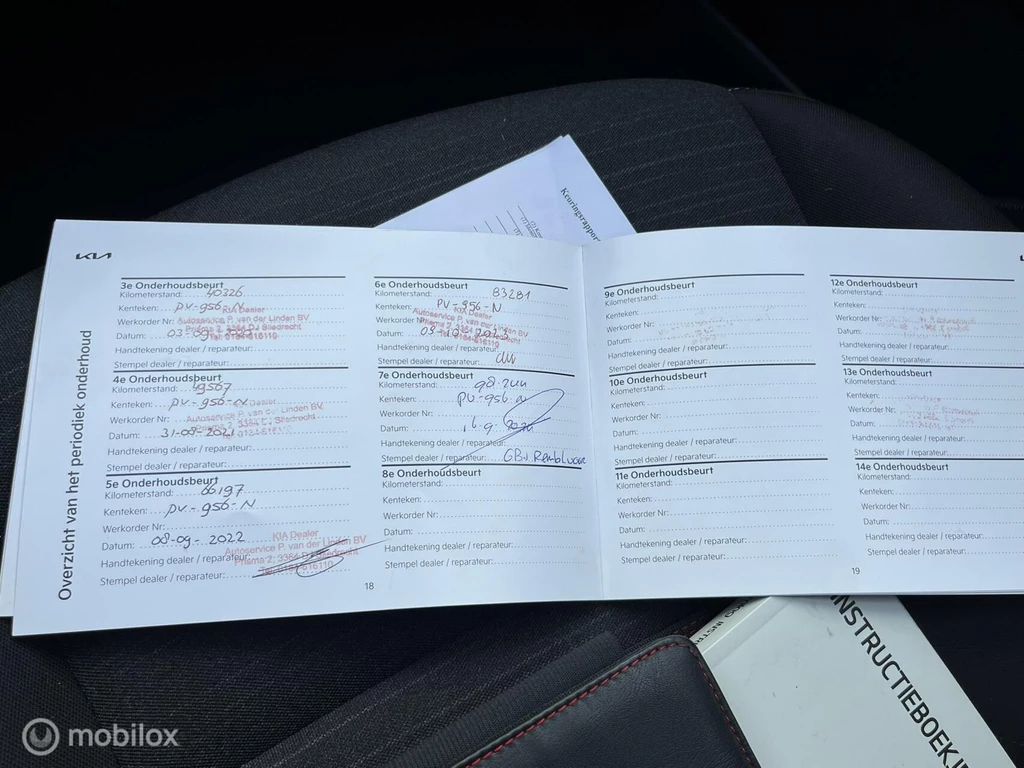 Keuringsrapport
KIA
Overzicht van het periodiek onderhoud
3e Onderhoudsbeurt
Kilometerstand: 40326
Kenteken: PV-956-N
Werkorder Nr:
KIA Dealer
Autoservice P. van der Linden BV
Prisma 2, 3364 DJ Sliedrecht
Tel: 0184-616110
Datum: 03-09-
Handtekening dealer / reparateur:
Stempel dealer / reparateur:
4e Onderhoudsbeurt
Kilometerstand: 49567
Kenteken: PV-956-N
Dealer
Werkorder Nr:
Autoservice P. van der Linden BV.
Datum: 31-09-2021
0184-616110
Handtekening dealer / reparateur:
Stempel dealer / reparateur:
5e Onderhoudsbeurt
Kilometerstand: 66197
Kenteken: PV-956-N
Werkorder Nr:
Datum: 08-09-2022
KIA Dealer
Autoservice P. van der Linden BV
Prisma 2, 3364 DJ Sliedrecht
Tel: 0184-616110
Handtekening dealer / reparateur:
Stempel dealer / reparateur:
6e Onderhoudsbeurt
Kilometerstand: 83281
Kenteken: PV-956-N
KIA Dealer
Werkorder Nr:
Autoservice P. van der Linden BV
Prisma 2, 3364 DJ Sliedrecht
Tel: 0184-616110
Datum: 03-10-2023
Handtekening dealer / reparateur:
Stempel dealer / reparateur:
7e Onderhoudsbeurt
Kilometerstand:
Kenteken: PV-956-N
Werkorder Nr:
Datum:
Handtekening dealer / reparateur:
Stempel dealer / reparateur:
8e Onderhoudsbeurt
Kilometerstand:
Kenteken:
Werkorder Nr:
Datum:
Handtekening dealer / reparateur:
Stempel dealer / reparateur:
18
9e Onderhoudsbeurt
Kilometerstand:
Kenteken:
Werkorder Nr:
Datum:
Handtekening dealer / reparateur:
Stempel dealer / reparateur:
10e Onderhoudsbeurt
Kilometerstand:
Kenteken:
Werkorder Nr:
Datum:
Handtekening dealer / reparateur:
Stempel dealer / reparateur:
11e Onderhoudsbeurt
Kilometerstand:
Kenteken:
Werkorder Nr:
Datum:
Handtekening dealer / reparateur:
Stempel dealer / reparateur:
12e Onderhoudsbeurt
Kilometerstand:
Kenteken:
Werkorder Nr:
Datum:
Handtekening dealer / reparateur:
Stempel dealer / reparateur:
13e Onderhoudsbeurt
Kilometerstand:
Kenteken:
Werkorder Nr:
Datum:
Handtekening dealer / reparateur:
Stempel dealer / reparateur:
14e Onderhoudsbeurt
Kilometerstand:
Kenteken:
Werkorder Nr:
Datum:
Handtekening dealer / reparateur:
Stempel dealer / reparateur:
19
INSTRUCTIEBOEKJE
mobilox